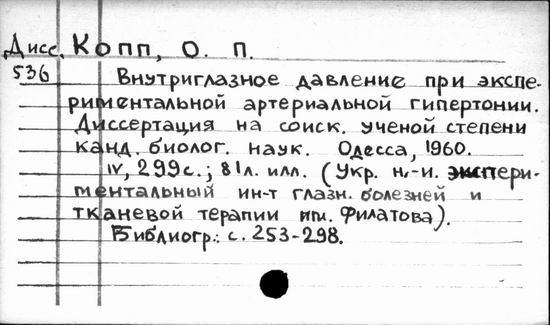 Дисс. Копп, О. П.
536
Внутриглазное давление при экспе-
риментальной артериальной гипертонии.
Диссертация на соиск. ученой степени
канд. биолог. наук. Одесса, 1960.
IV, 299с.; 81л. илл. (Укр. н.-и. экспери-
ментальный ин-т глазн. болезней и
тканевой терапии им. Филатова).
Библиогр.: с. 253-298.